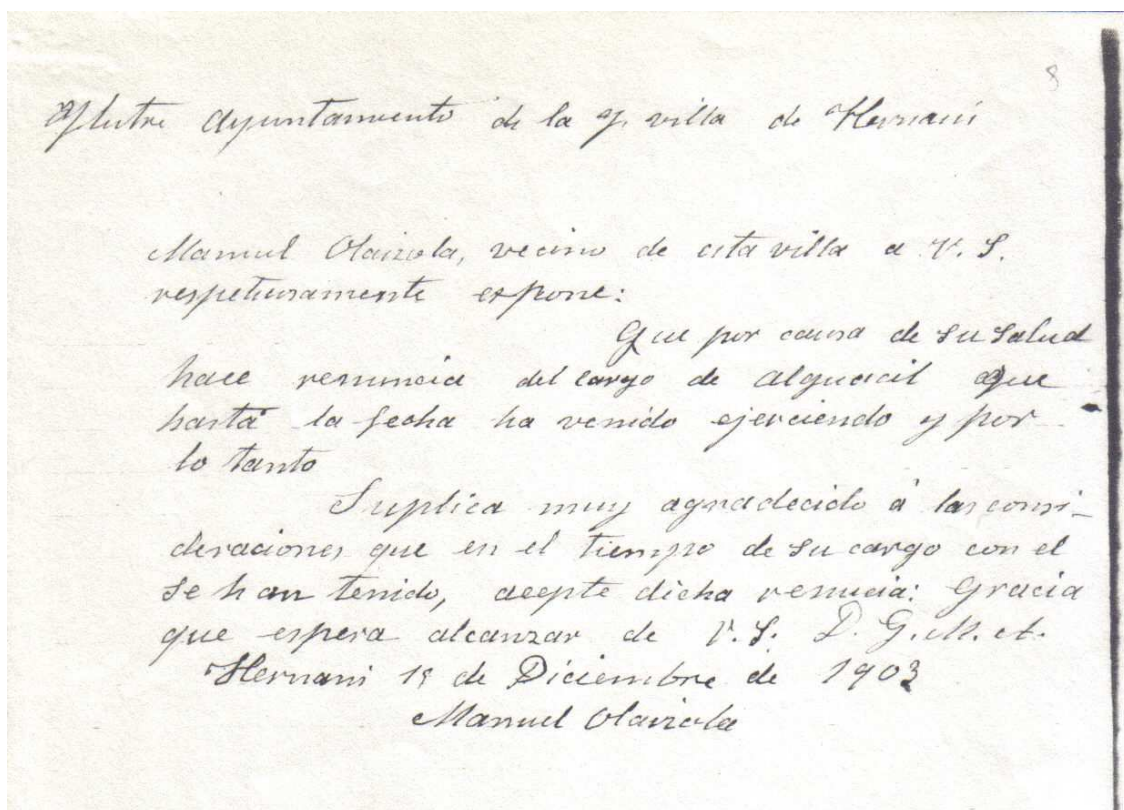 8
Ylustre Ayuntamiento de la Y. villa de Hernani
Manuel Olaizola, vecino de esta villa a V. S.
respetuosamente expone:
Que por causa de su salud
hace renuncia del cargo de alguacil que
hasta la fecha ha venido ejerciendo y por
lo tanto
Suplica muy agradecido á las consi-
deraciones que en el tiempo de su cargo con el
se han tenido, acepte dicha renucia: Gracia
que espera alcanzar de V. S. D. G. M. A.
Hernani de Diciembre de 1903
Manuel Olaizola